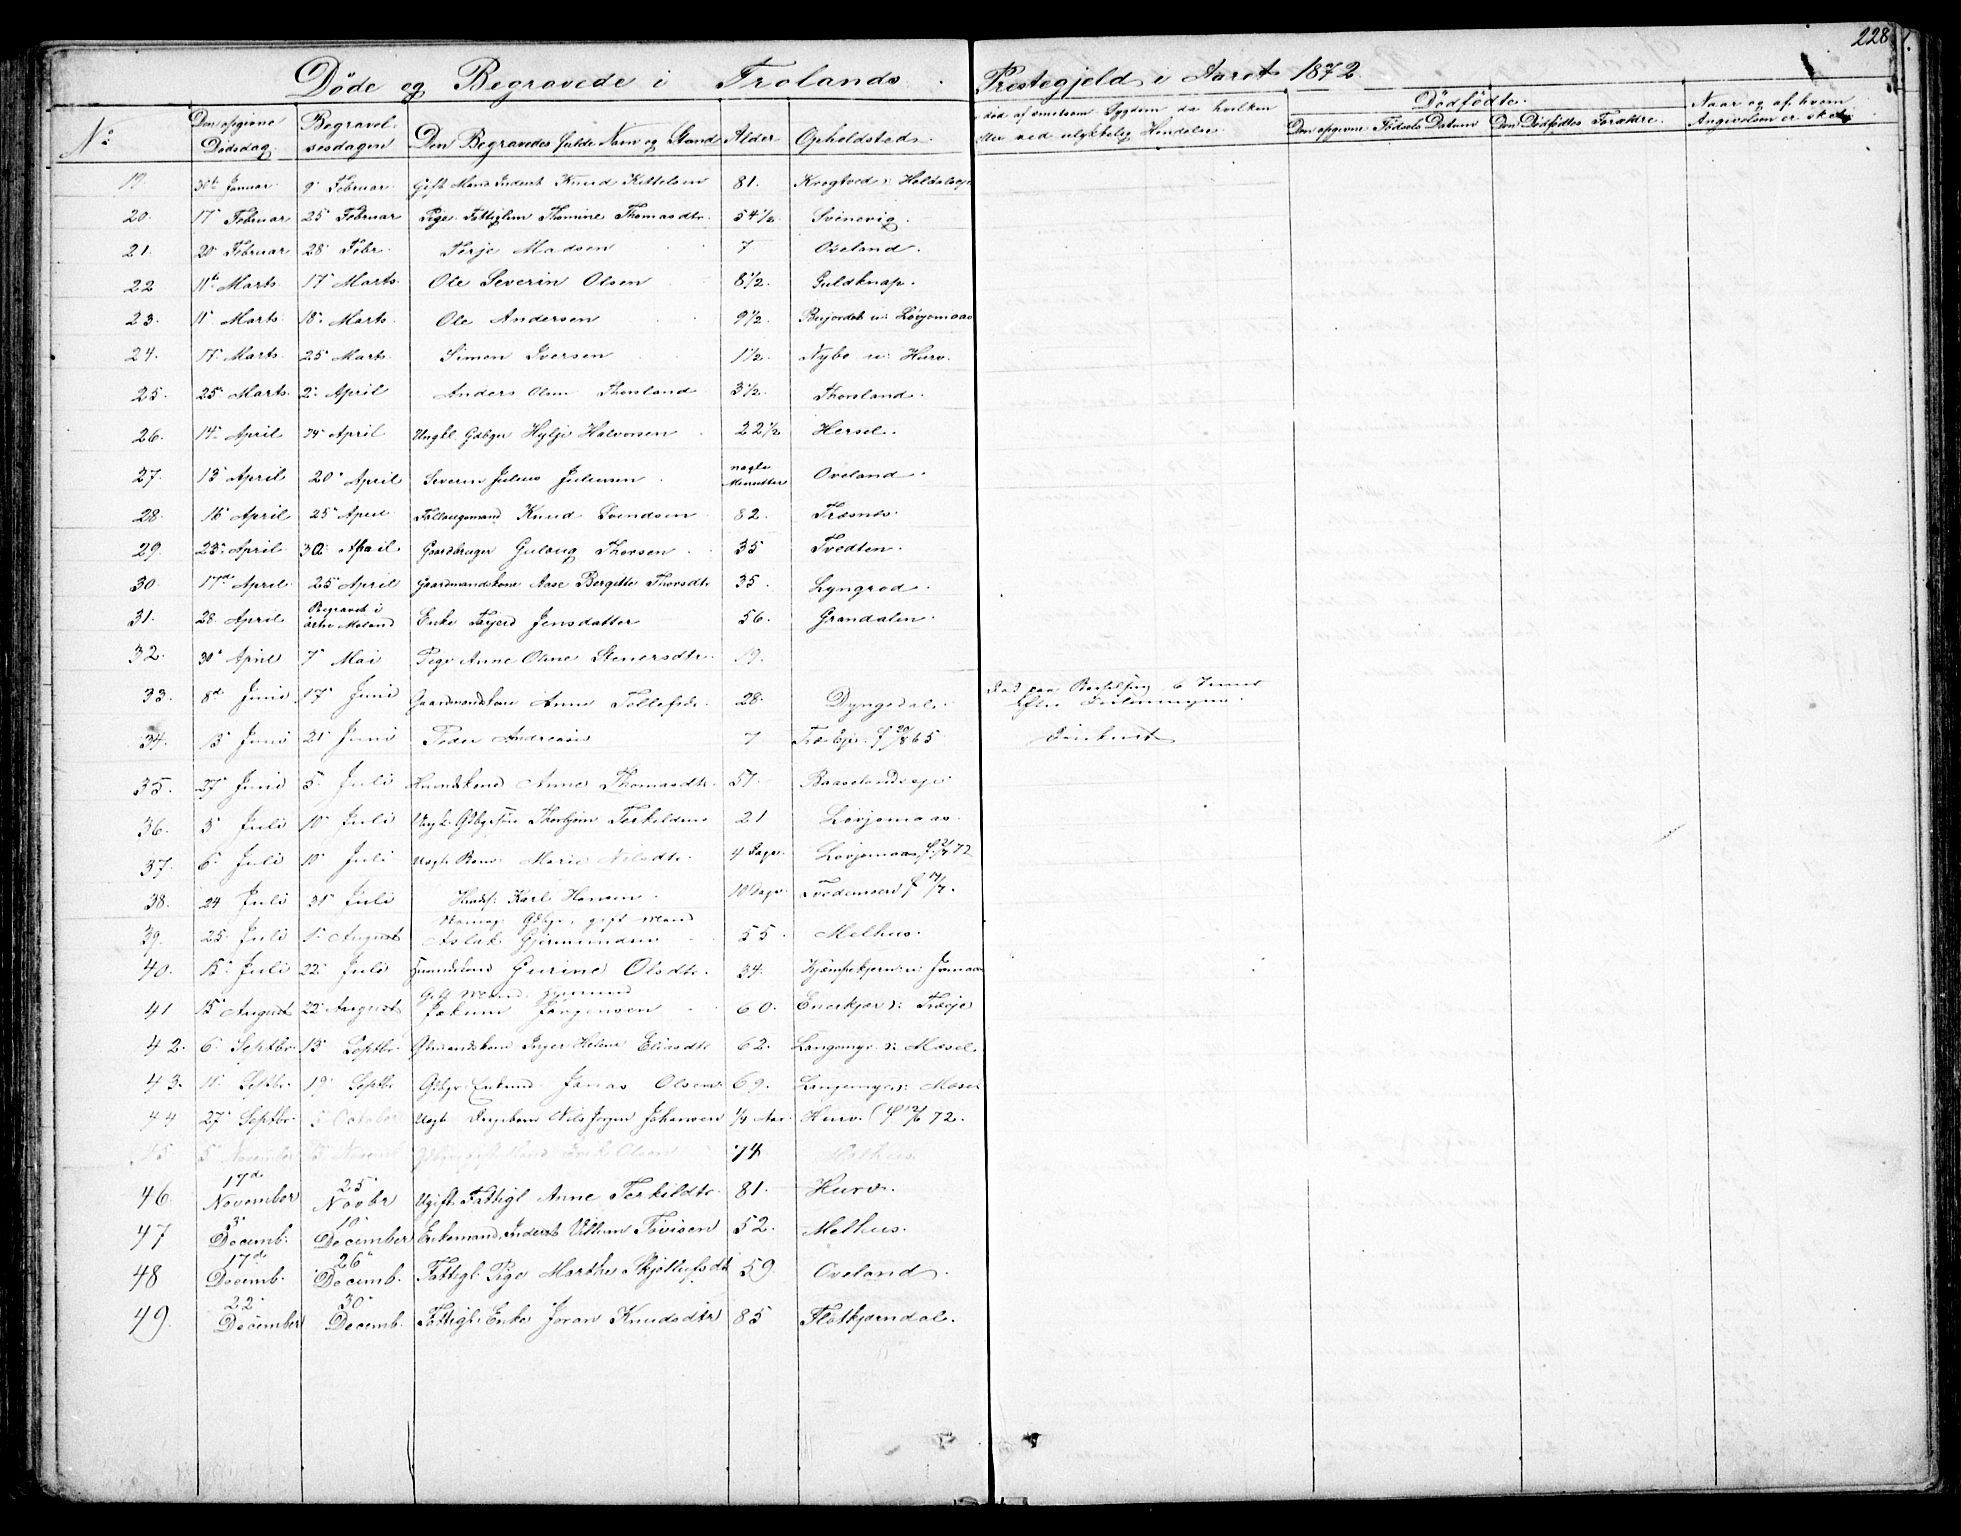 228
Döde og Begravede i Frolands Prestegjeld i Aaret 1872.
No: Den opgivne Dødsdag Begravelsesdagen Den Begravedes fulde Navn og Stand Alder Opholdsted
død af smitsom Sygdom da hvilken
eller ved ulykkelig Hendelse.
Dødfødte.
Den opgivne Fødsels Datum Den Dødfødtes Forældre.
Naar og af hvem
Angivelsen er skeet
19. 30te Januar 9 Februar Gift Mand Inderst Knud Kittelsen 81. Krogtved u: Holdalseje
20. 17 Februar 25 Februar Pige Fattiglem Thomine Thomasdtr. 54 1/2 Svenevig.
21. 20 Februar 28 Febr. Terje Madsen 7 Oveland.
22 11te Marts 17 Marts Ole Severin Olsen 8 1/2. Guldknap.
23. 11 Marts 18 Marts Ole Andersen 9 1/2. u: Løvjomaas
24. 17 Marts 25 Marts Simon Iversen 1 1/2. Nybo u: Hurv.
25. 25 Marts 2 April Anders Olsen Thorsland 3 1/2. Thorsland.
26. 14 April 24 April Ungkl. Gdbgr Hylje Halvorsen 22 1/2 Hersel.
27. 13 April 20 April Severin Julius Juliusen nogle Minutter Oveland
28. 16 April 25 April Føllaugsmand Knud Svendsen 82. Træsnes.
29. 23 April 30 April Gaardbruger Gulaug Thorsen 35 Tvedten.
30. 17de April 25 April Gaardmandskone Aase Bergitte Thorsdtr 35. Lyngrod.
31. 28 April Begravet i østre Moland Enke Jensdatter 56. Grandalen.
32. 30 April 7 Mai Pige Anne Oline Stenersdtr. 19.
33. 8de Juni 17 Juni Gaardmandskone Anne Tellefsdr. 28. Dyngedal. Død paa Barselseng 6 Timer
Efter
34. 13 Juni 21 Juni Peder Andreasen 7 f 20/8 65
35. 27 Juni 5 Juli Huusmdskone Anne Thomasdtr. 57. Baaselandseje
36. 3 Juli 10 Juli Ungk. Gdbgrsøn Thorbjørn Terkildsen 21 Løvjomaas.
37. 6 Juli 10 Juli Uægte Barn Marie Nilsdtr. 4 Dage. Løvjomaas 72
38. 24 Juli 31 Juli Karl Hansen 10 Dage. f 14/7.
39. 25 Juli 1 August Gdbgr. gift Mand
Aslak Gjermundsen 55. Melhus.
40. 15 Juli 22 Juli Gurine Olsdtr. 34. Kjæmpekjern u: Jomaas
41 15 August 22 August Gift Mand Huusmd
Jakum Jørgensen 60. u: Træeje
42. 6 Septbr. 13 Septbr. Gdmandskone Inger Helene Eliasdtr 62. Langemyr u: Mæsel.
43. 11 Septbr. 19 Septbr Gdbgr Enkmd. Jonas Olsen 69. Langemyr u: Mæsel
44 27 Septbr. 5 October Uægte Drengebarn Nils Jørgen Johansen 1/4 Aar. Hurv. (f 12/6 72.
45 5 November 13 Novemb Gdbgr gift Mand Olsen 74 Melhus.
46. 17de November 25 Novbr Ugift Fattigl. Anne Terkildtr. 81. Hurv.
47 3 Decemb. 10 December Enkemand Inderst Villum Tovisen 52. Melhus.
48 17de Decemb. 26 Decemb. Fattigl. Pige Marthe Skjøllufsdt 59. Oveland.
49. 22 December 30 Decemb. Fattigl. Enke Joran Knudsdtr 85 Flatkjerndal.